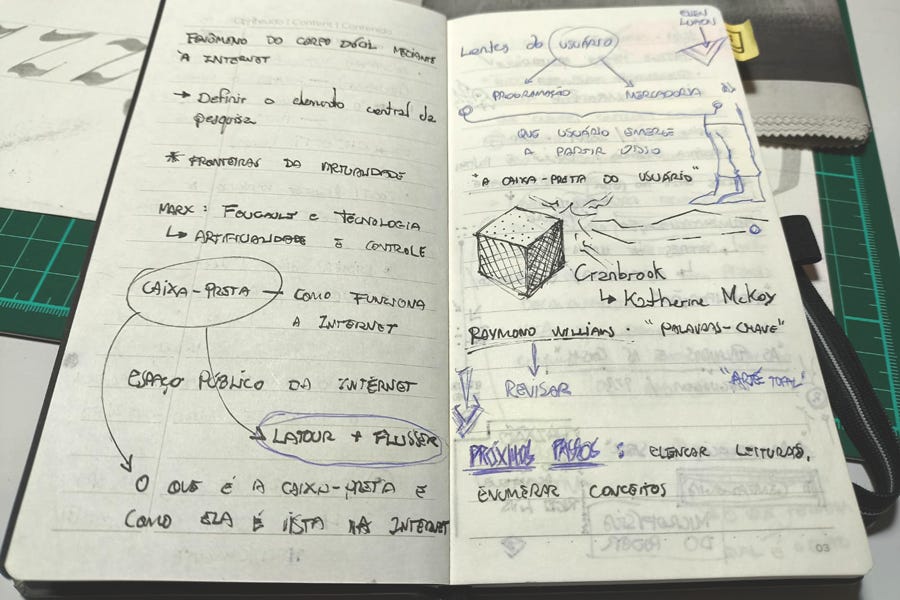 Conteúdo | Content | Contenido
FENÔMENO DO CORPO DÓCIL MEDIANTE
A INTERNET
→ Definir o elemento central da
pesquisa
* FRONTEIRAS DA VIRTUALIDADE
MARX: FOUCAULT E TECNOLOGIA
↳ ARTIFICIALIDADE E CONTROLE
CAIXA-PRETA — COMO FUNCIONA
A INTERNET
ESPAÇO PÚBLICO DA INTERNET
LATOUR + FLUSSER
O QUE É A CAIXA-PRETA E
COMO ELA É VISTA NA INTERNET
ELLEN
LUPTON
Lentes do USUÁRIO
PROGRAMAÇÃO MERCADORIA
QUE USUÁRIO EMERGE
A PARTIR DISSO
"A CAIXA-PRETA DO USUÁRIO"
Cranbrook
↳ Katherine McKoy
RAYMOND WILLIAMS · "PALAVRAS-CHAVE"
REVISAR
"ARTE TOTAL"
PRÓXIMOS PASSOS: ELENCAR LEITURAS,
ENUMERAR CONCEITOS
03